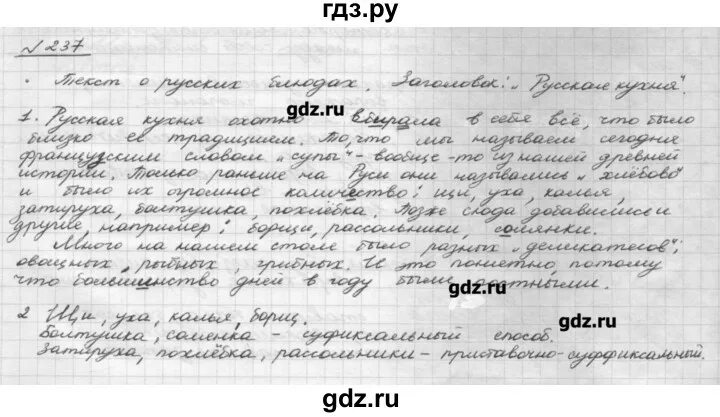 гдз.ру
№ 237
• Текст о русских блюдах. Заголовок: „Русская кухня".
1. Русская кухня охотно вбирала в себя всё, что было
близко её традициям. То, что мы называем сегодня
французским словом „супы" - вообще-то из нашей древней
истории. Только раньше на Руси они назывались „хлёбово"
и было их огромное количество: щи, уха, калья,
затируха, болтушка, похлёбка. Позже сюда добавились и
другие, например: борщи, рассольники, солянки.
Много на нашем столе было разных „деликатесов":
овощных, рыбных, грибных. И это понятно, потому
что большинство дней в году были постными.
2 Щи, уха, калья, борщ.
Болтушка, солянка - суфиксальный способ.
Затируха, похлёбка, рассольники - приставочно-суффиксальный.
gdz.ru
gdz.ru
gdz.ru
gdz.ru
гдз.ру